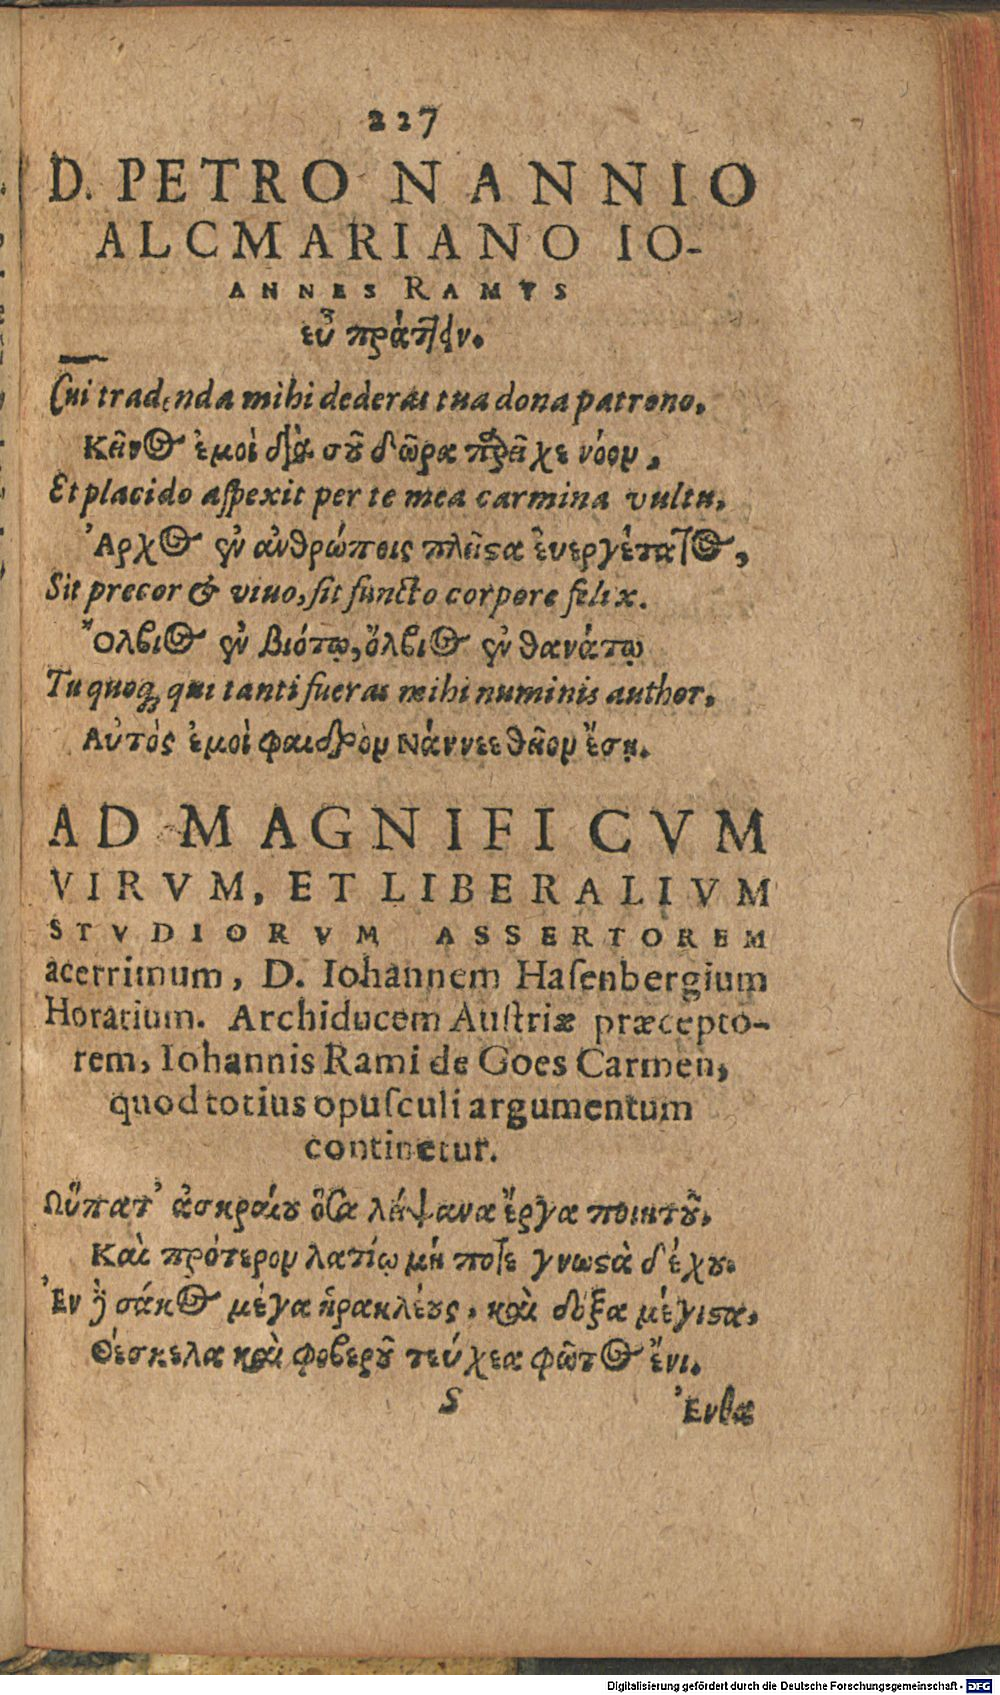 227
D. PETRO NANNIO
ALCMARIANO IO-
ANNES RAMVS
εὖ πράττειν.
Cui tradenda mihi dederas tua dona patrono,
Κεῖνος ἐμοὶ διὰ σοῦ δῶρα πρᾶχε νόομ,
Et placido aſpexit per te mea carmina vultu,
Ἀρχὸς ἐν ἀνθρώποις πλεῖϛα ἐυεργέτατος,
Sit precor & viuo, ſit functo corpore felix.
Ὄλβιος ἐν βιότῳ, ὄλβιος ἐν θανάτῳ
Tu quoq; qui tanti fueras mihi numinis author,
Αὐτός ἐμοὶ φαιδρὸμ Νάννεε θεῖομ ἔσῃ.
AD MAGNIFICVM
VIRVM, ET LIBERALIVM
STVDIORVM ASSERTOREM
acerrimum, D. Iohannem Haſenbergium
Horatium. Archiducem Auſtriæ præcepto-
rem, Iohannis Rami de Goes Carmen,
quod totius opuſculi argumentum
continetur.
Ωὕπατ' ἀσκραίου ὅσα λάψανα ἔργα ποιητοῦ,
Καὶ πρότερομ λατίῳ μή ποτε γνωϛὰ δέχου.
Ἐν ᾗ σάκος μέγα ἡρακλέους, καὶ δόξα μέγιϛα,
Θέσκελα καὶ φοβεροῦ τεύχεα φῶτος ἔνι.
S
Ἐνθα
Digitalisierung gefördert durch die Deutsche Forschungsgemeinschaft - DFG